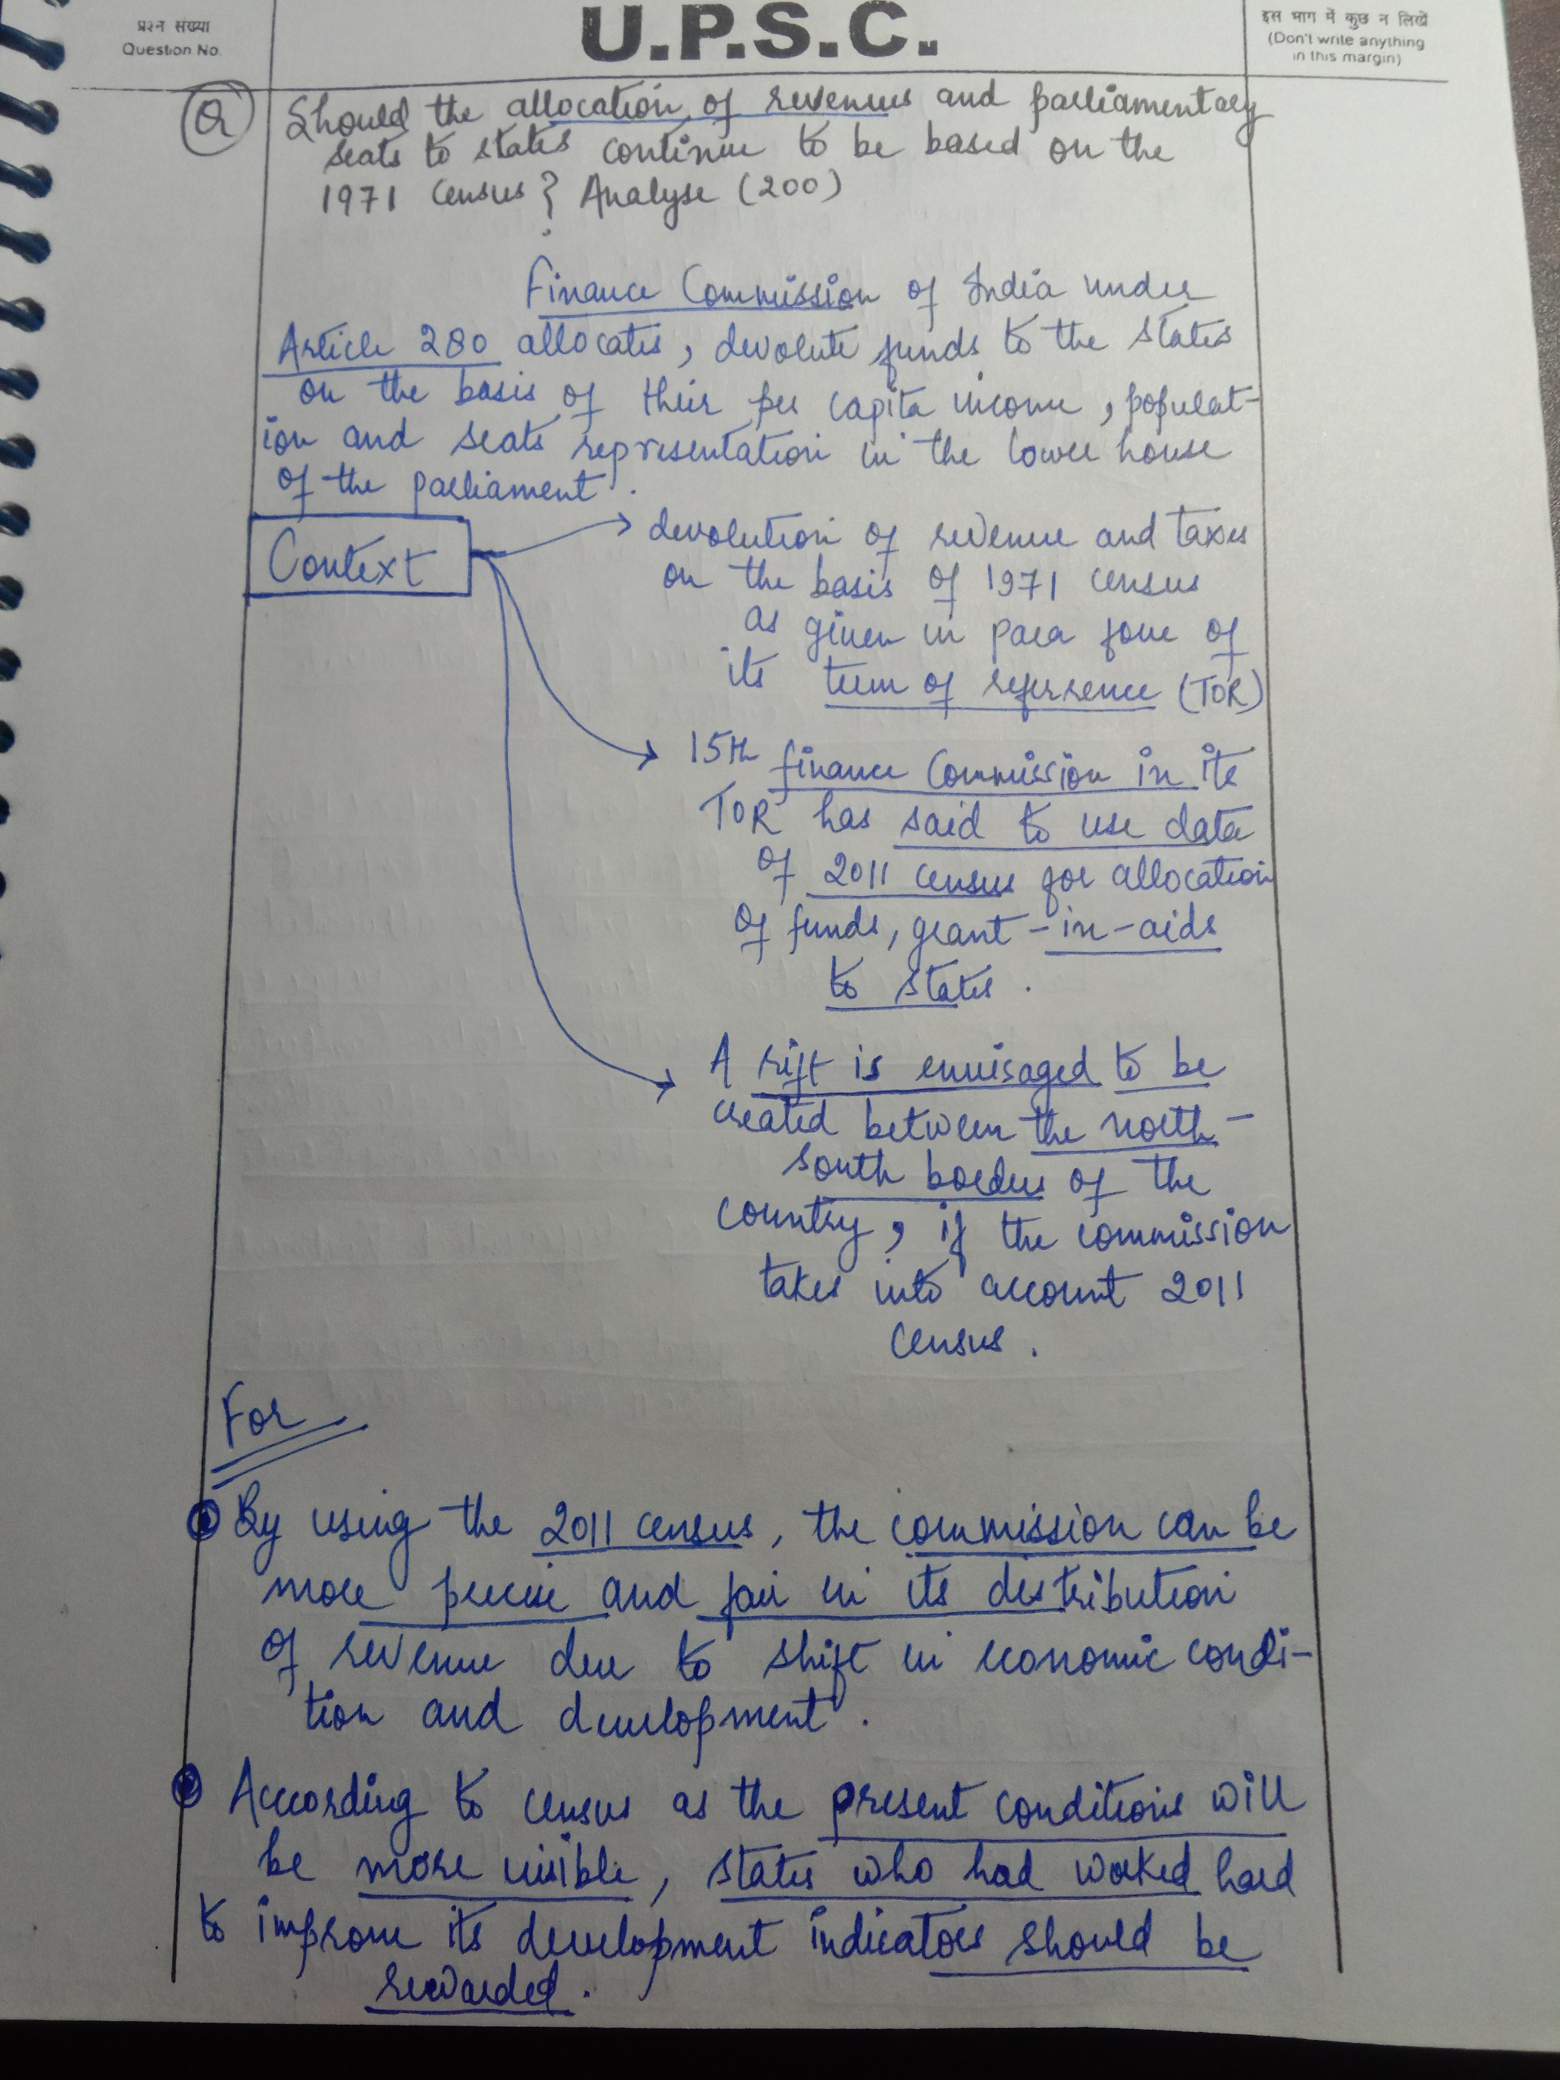 प्रश्न संख्या
Question No.
U.P.S.C.
इस भाग में कुछ न लिखें
(Don't write anything
in this margin)
Q Should the allocation of revenues and parliamentary
seats to states continue to be based on the
1971 census? Analyse (200)
Finance Commission of India under
Article 280 allocates, devolute funds to the states
on the basis of their per capita income, populat-
ion and seats representation in the lower house
of the parliament.
Context
devolution of revenue and taxes
on the basis of 1971 census
as given in para four of
its term of refersence (TOR)
15th finance Commission in its
TOR has said to use data
of 2011 census for allocation
of funds, grant-in-aids
to states.
A rift is envisaged to be
created between the north-
south borders of the
country, if the commission
takes into account 2011
census.
For
By using the 2011 census, the commission can be
more precise and fair in its distribution
of revenue due to shift in economic condi-
tion and development.
According to census as the present conditions will
be more visible, states who had worked hard
to improve its development indicators should be
rewarded.